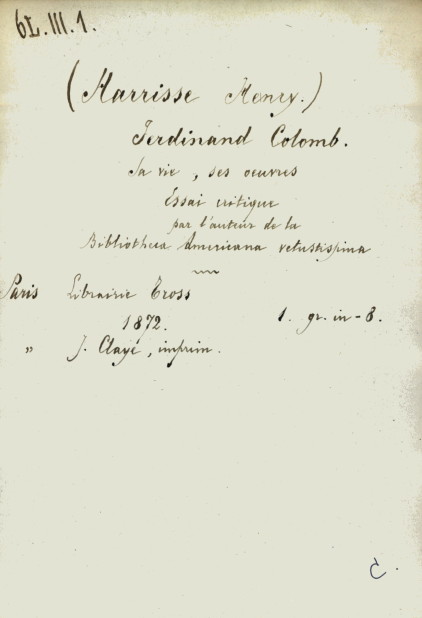 6L.III.1.
(Harrisse Henry.)
Ferdinand Colomb.
Sa vie, ses oeuvres
Essai critique
par l'auteur de la
Bibliotheca Americana vetustissima
Paris Librairie Tross
1872. 1. gr. in-8.
" J. Claye, imprim.
C.